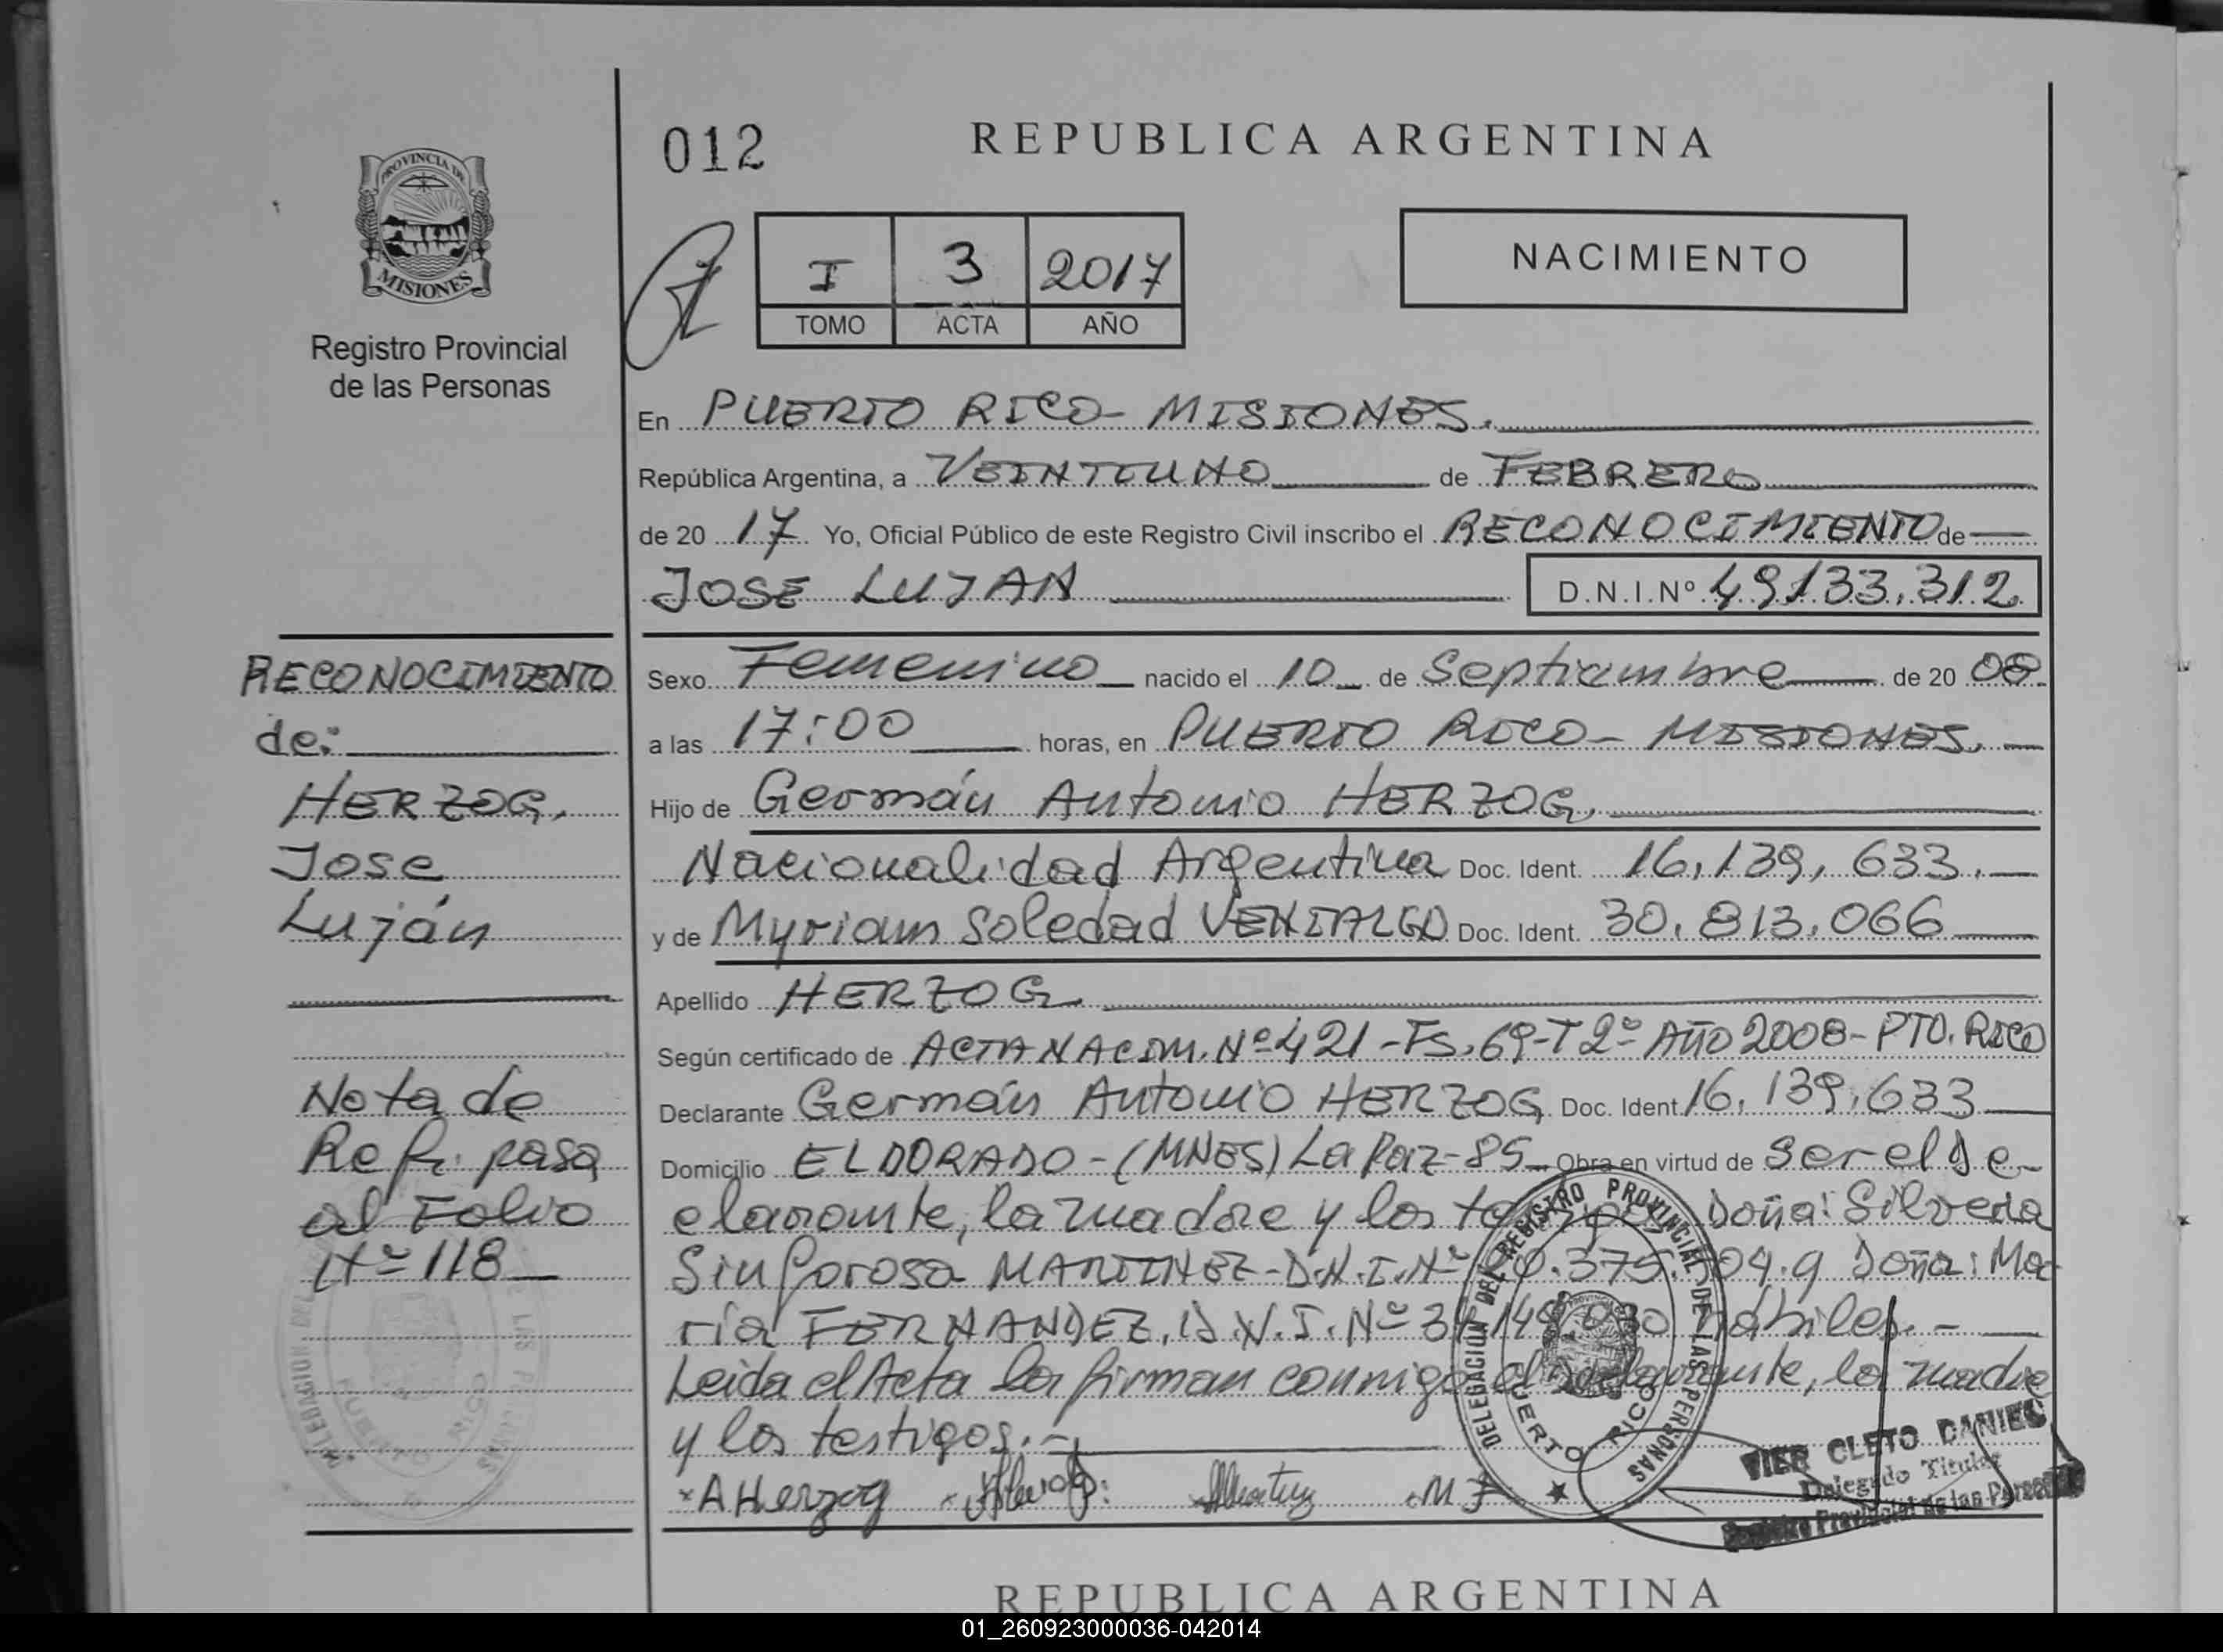 012
REPUBLICA ARGENTINA
PROVINCIA DE
MISIONES
Registro Provincial
de las Personas
I 3 2017
TOMO ACTA AÑO
NACIMIENTO
En PUERTO RICO- MISIONES.
República Argentina, a VEINTIUNO de FEBRERO
de 20 17 Yo, Oficial Público de este Registro Civil inscribo el RECONOCIMIENTO de
JOSE LUJAN D.N.I.Nº 49133.312
RECONOCIMIENTO
de:
HERZOG,
Jose
Luján
Nota de
Ref. pasa
al Folio
Nº 118
Sexo Femenino nacido el 10 de Septiembre de 20 08
a las 17:00 horas, en PUERTO RICO- MISIONES.
Hijo de Germán Antonio HERZOG,
Nacionalidad Argentina Doc. Ident. 16,139,633.
y de Myriam Soledad VENIALGO Doc. Ident. 30.813.066
Apellido HERZOG
Según certificado de ACTA NACIM. Nº 421 -Fs. 69-T 2º Año 2008- PTO. RICO
Declarante Germán Antonio HERZOG Doc. Ident. 16.139.633
Domicilio ELDORADO-(MNES) La Paz-85 Obra en virtud de ser el De-
clarante, la madre y los Doña: Silveria
Sinforosa MARTINEZ-D.N.I.Nº .375. 04.y Doña: Ma-
ría FERNANDEZ, D.N.I. Nº hábiles.-
Leida el Acta la firman conmigo el Declarante, la madre
y los testigos.-
A Herzog MF
DELEGACIÓN DEL REGISTRO PROVINCIAL DE LAS PERSONAS
PUERTO RICO
VIER CLETO DANIEL
Delegado Titular
Registro Provincial de las Personas
REPUBLICA ARGENTINA
01_260923000036-042014